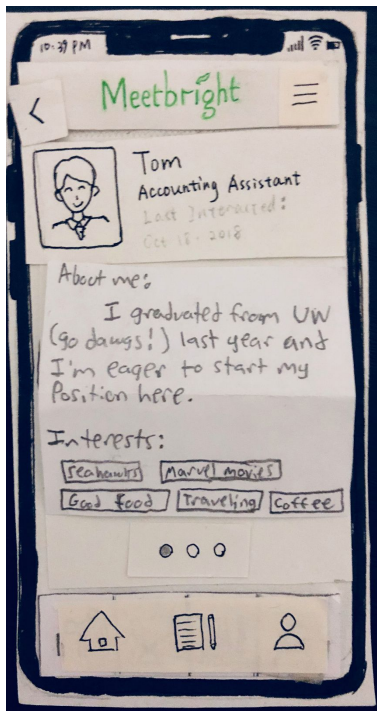 10:39 PM
Meetbright
Tom
Accounting Assistant
Last Interacted:
Oct 18 - 2018
About me:
I graduated from UW
(go dawgs!) last year and
I'm eager to start my
Position here.
Interests:
Seahawks Marvel movies
Good food Traveling Coffee